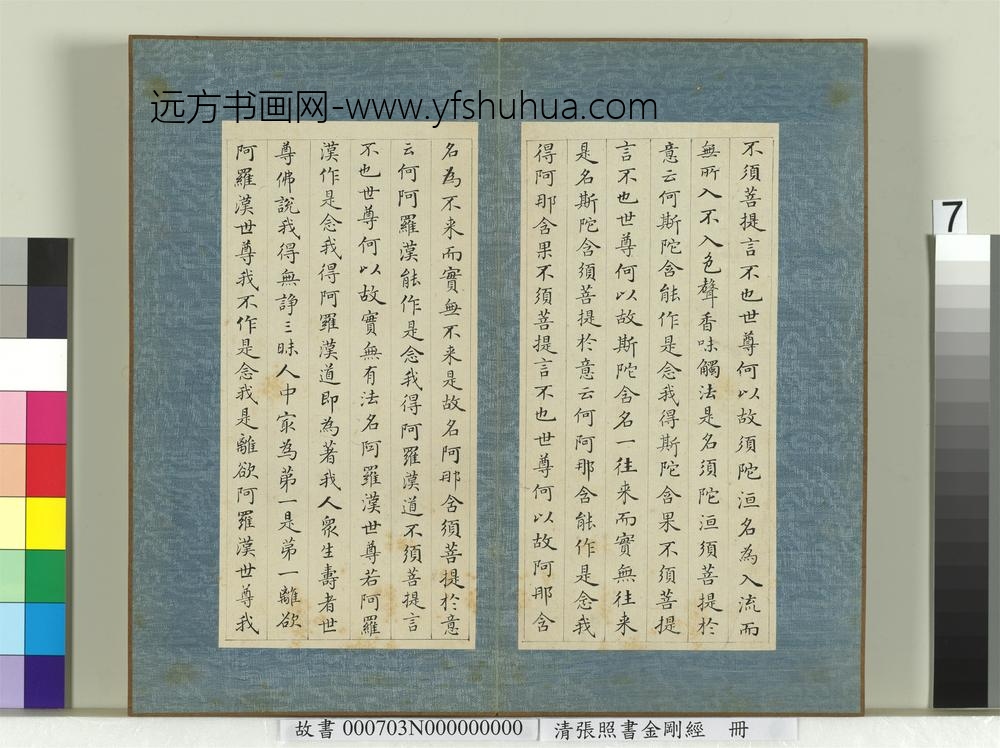 远方书画网-www.yfshuhua.com
不須菩提言不也世尊何以故須陀洹名為入流而
無所入不入色聲香味觸法是名須陀洹須菩提於
意云何斯陀含能作是念我得斯陀含果不須菩提
言不也世尊何以故斯陀含名一往来而實無往来
是名斯陀含須菩提於意云何阿那含能作是念我
得阿那含果不須菩提言不也世尊何以故阿那含
名為不来而實無不来是故名阿那含須菩提於意
云何阿羅漢能作是念我得阿羅漢道不須菩提言
不也世尊何以故實無有法名阿羅漢世尊若阿羅
漢作是念我得阿羅漢道即為著我人衆生壽者世
尊佛說我得無諍三昧人中冣為第一是第一離欲
阿羅漢世尊我不作是念我是離欲阿羅漢世尊我
7
故書 000703N000000000 清張照書金剛經 冊